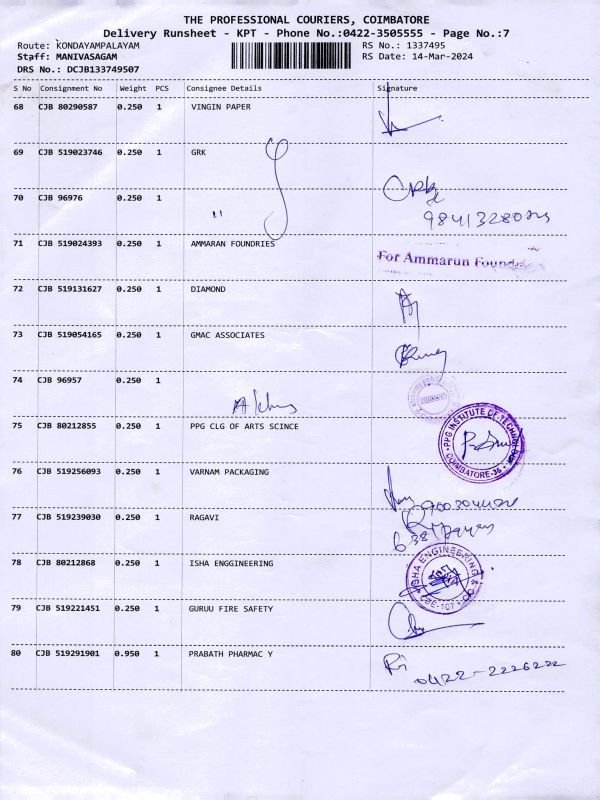 THE PROFESSIONAL COURIERS, COIMBATORE
Delivery Runsheet - KPT - Phone No.:0422-3505555 - Page No.:7
Route: KONDAYAMPALAYAM RS No.: 1337495
Staff: MANIVASAGAM RS Date: 14-Mar-2024
DRS No.: DCJB133749507
S No Consignment No Weight PCS Consignee Details Signature
68 CJB 80290587 0.250 1 VINGIN PAPER
69 CJB 519023746 0.250 1 GRK
70 CJB 96976 0.250 1 "
71 CJB 519024393 0.250 1 AMMARAN FOUNDRIES For Ammarun
72 CJB 519131627 0.250 1 DIAMOND
73 CJB 519054165 0.250 1 GMAC ASSOCIATES
74 CJB 96957 0.250 1
75 CJB 80212855 0.250 1 PPG CLG OF ARTS SCINCE PPG INSTITUTE OF COIMBATORE-35
76 CJB 519256093 0.250 1 VARNAM PACKAGING
77 CJB 519239030 0.250 1 RAGAVI
78 CJB 80212868 0.250 1 ISHA ENGGINEERING ISHA ENGINEERING
79 CJB 519221451 0.250 1 GURUU FIRE SAFETY
80 CJB 519291901 0.950 1 PRABATH PHARMAC Y 0422-2226222